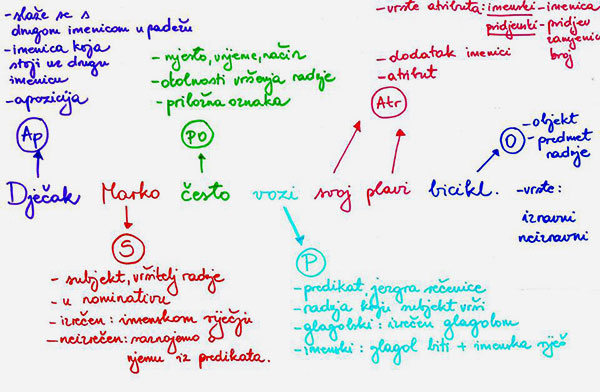 - slaže se s
drugom imenicom u padežu
- imenica koja
stoji uz drugu
imenicu
- apozicija
Ap
- mjesto, vrijeme, način
- okolnosti vršenja radnje
- priložna oznaka
PO
- vrste atributa: imenski - imenica
pridjevski - pridjev
zamjenica
broj
- dodatak imenici
- atribut
Atr
O
- objekt
- predmet
radnje
Dječak Marko često vozi svoj plavi bicikl.
- vrste:
izravni
neizravni
S
- subjekt, vršitelj radnje
- u nominativu
- izrečen: imenskom riječju
- neizrečen: saznajemo o
njemu iz predikata.
P
- predikat, jezgra rečenice
- radnja koju subjekt vrši
- glagolski: izrečen glagolom
- imenski: glagol biti + imenska riječ